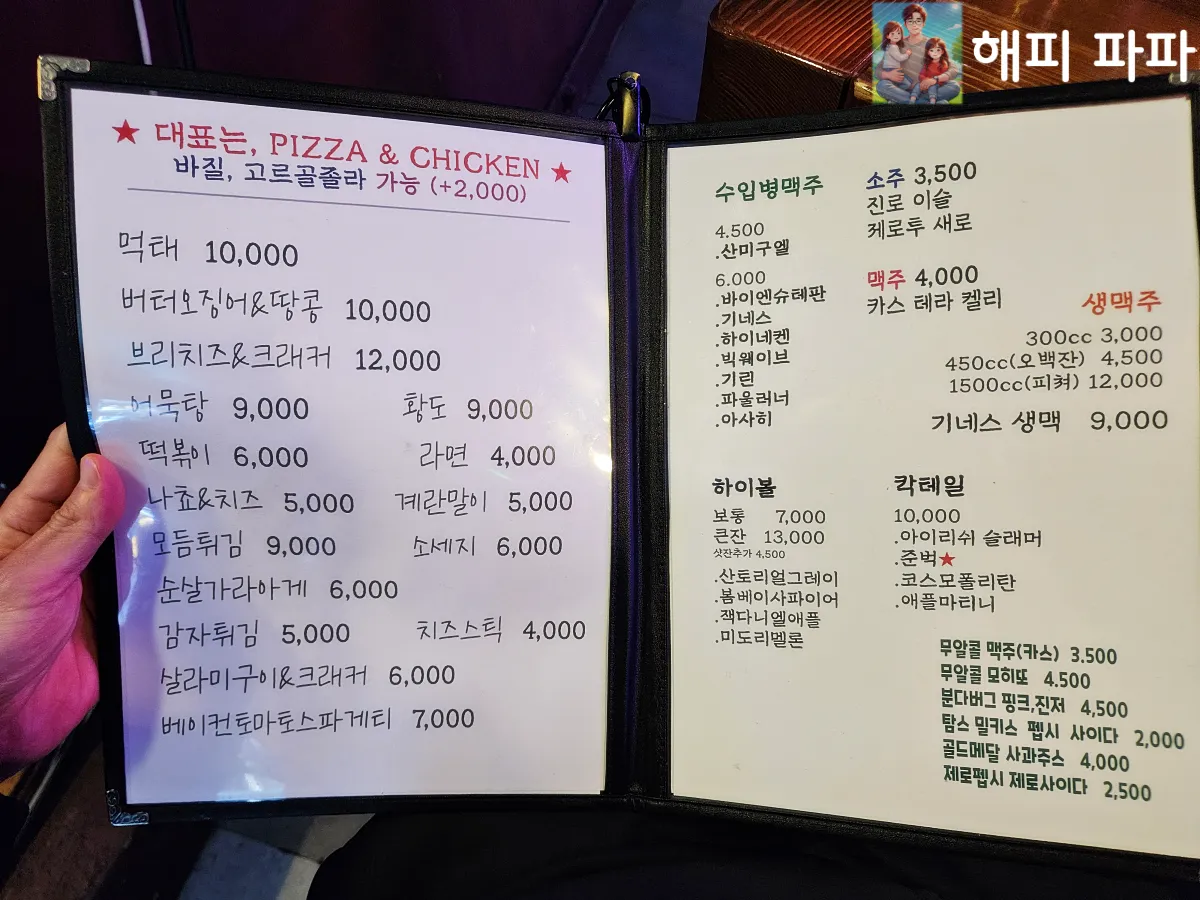 해피 파파
★ 대표는, PIZZA & CHICKEN ★
바질, 고르골졸라 가능 (+2,000)
먹태 10,000
버터오징어&땅콩 10,000
브리치즈&크래커 12,000
어묵탕 9,000 황도 9,000
떡볶이 6,000 라면 4,000
나쵸&치즈 5,000 계란말이 5,000
모듬튀김 9,000 소세지 6,000
순살가라아게 6,000
감자튀김 5,000 치즈스틱 4,000
살라미구이&크래커 6,000
베이컨토마토스파게티 7,000
수입병맥주
4.500
.산미구엘
6.000
.바이엔슈테판
.기네스
.하이네켄
.빅웨이브
.기린
.파울러너
.아사히
소주 3,500
진로 이슬
케로투 새로
맥주 4,000
카스 테라 켈리
생맥주
300cc 3,000
450cc(오백잔) 4,500
1500cc(피쳐) 12,000
기네스 생맥 9,000
하이볼
보통 7,000
큰잔 13,000
샷잔추가 4,500
.산토리얼그레이
.봄베이사파이어
.잭다니엘애플
.미도리멜론
칵테일
10,000
.아이리쉬 슬래머
.준벅★
.코스모폴리탄
.애플마티니
무알콜 맥주(카스) 3.500
무알콜 모히또 4.500
분다버그 핑크,진저 4,500
탐스 밀키스 펩시 사이다 2,000
골드메달 사과주스 4,000
제로펩시 제로사이다 2,500